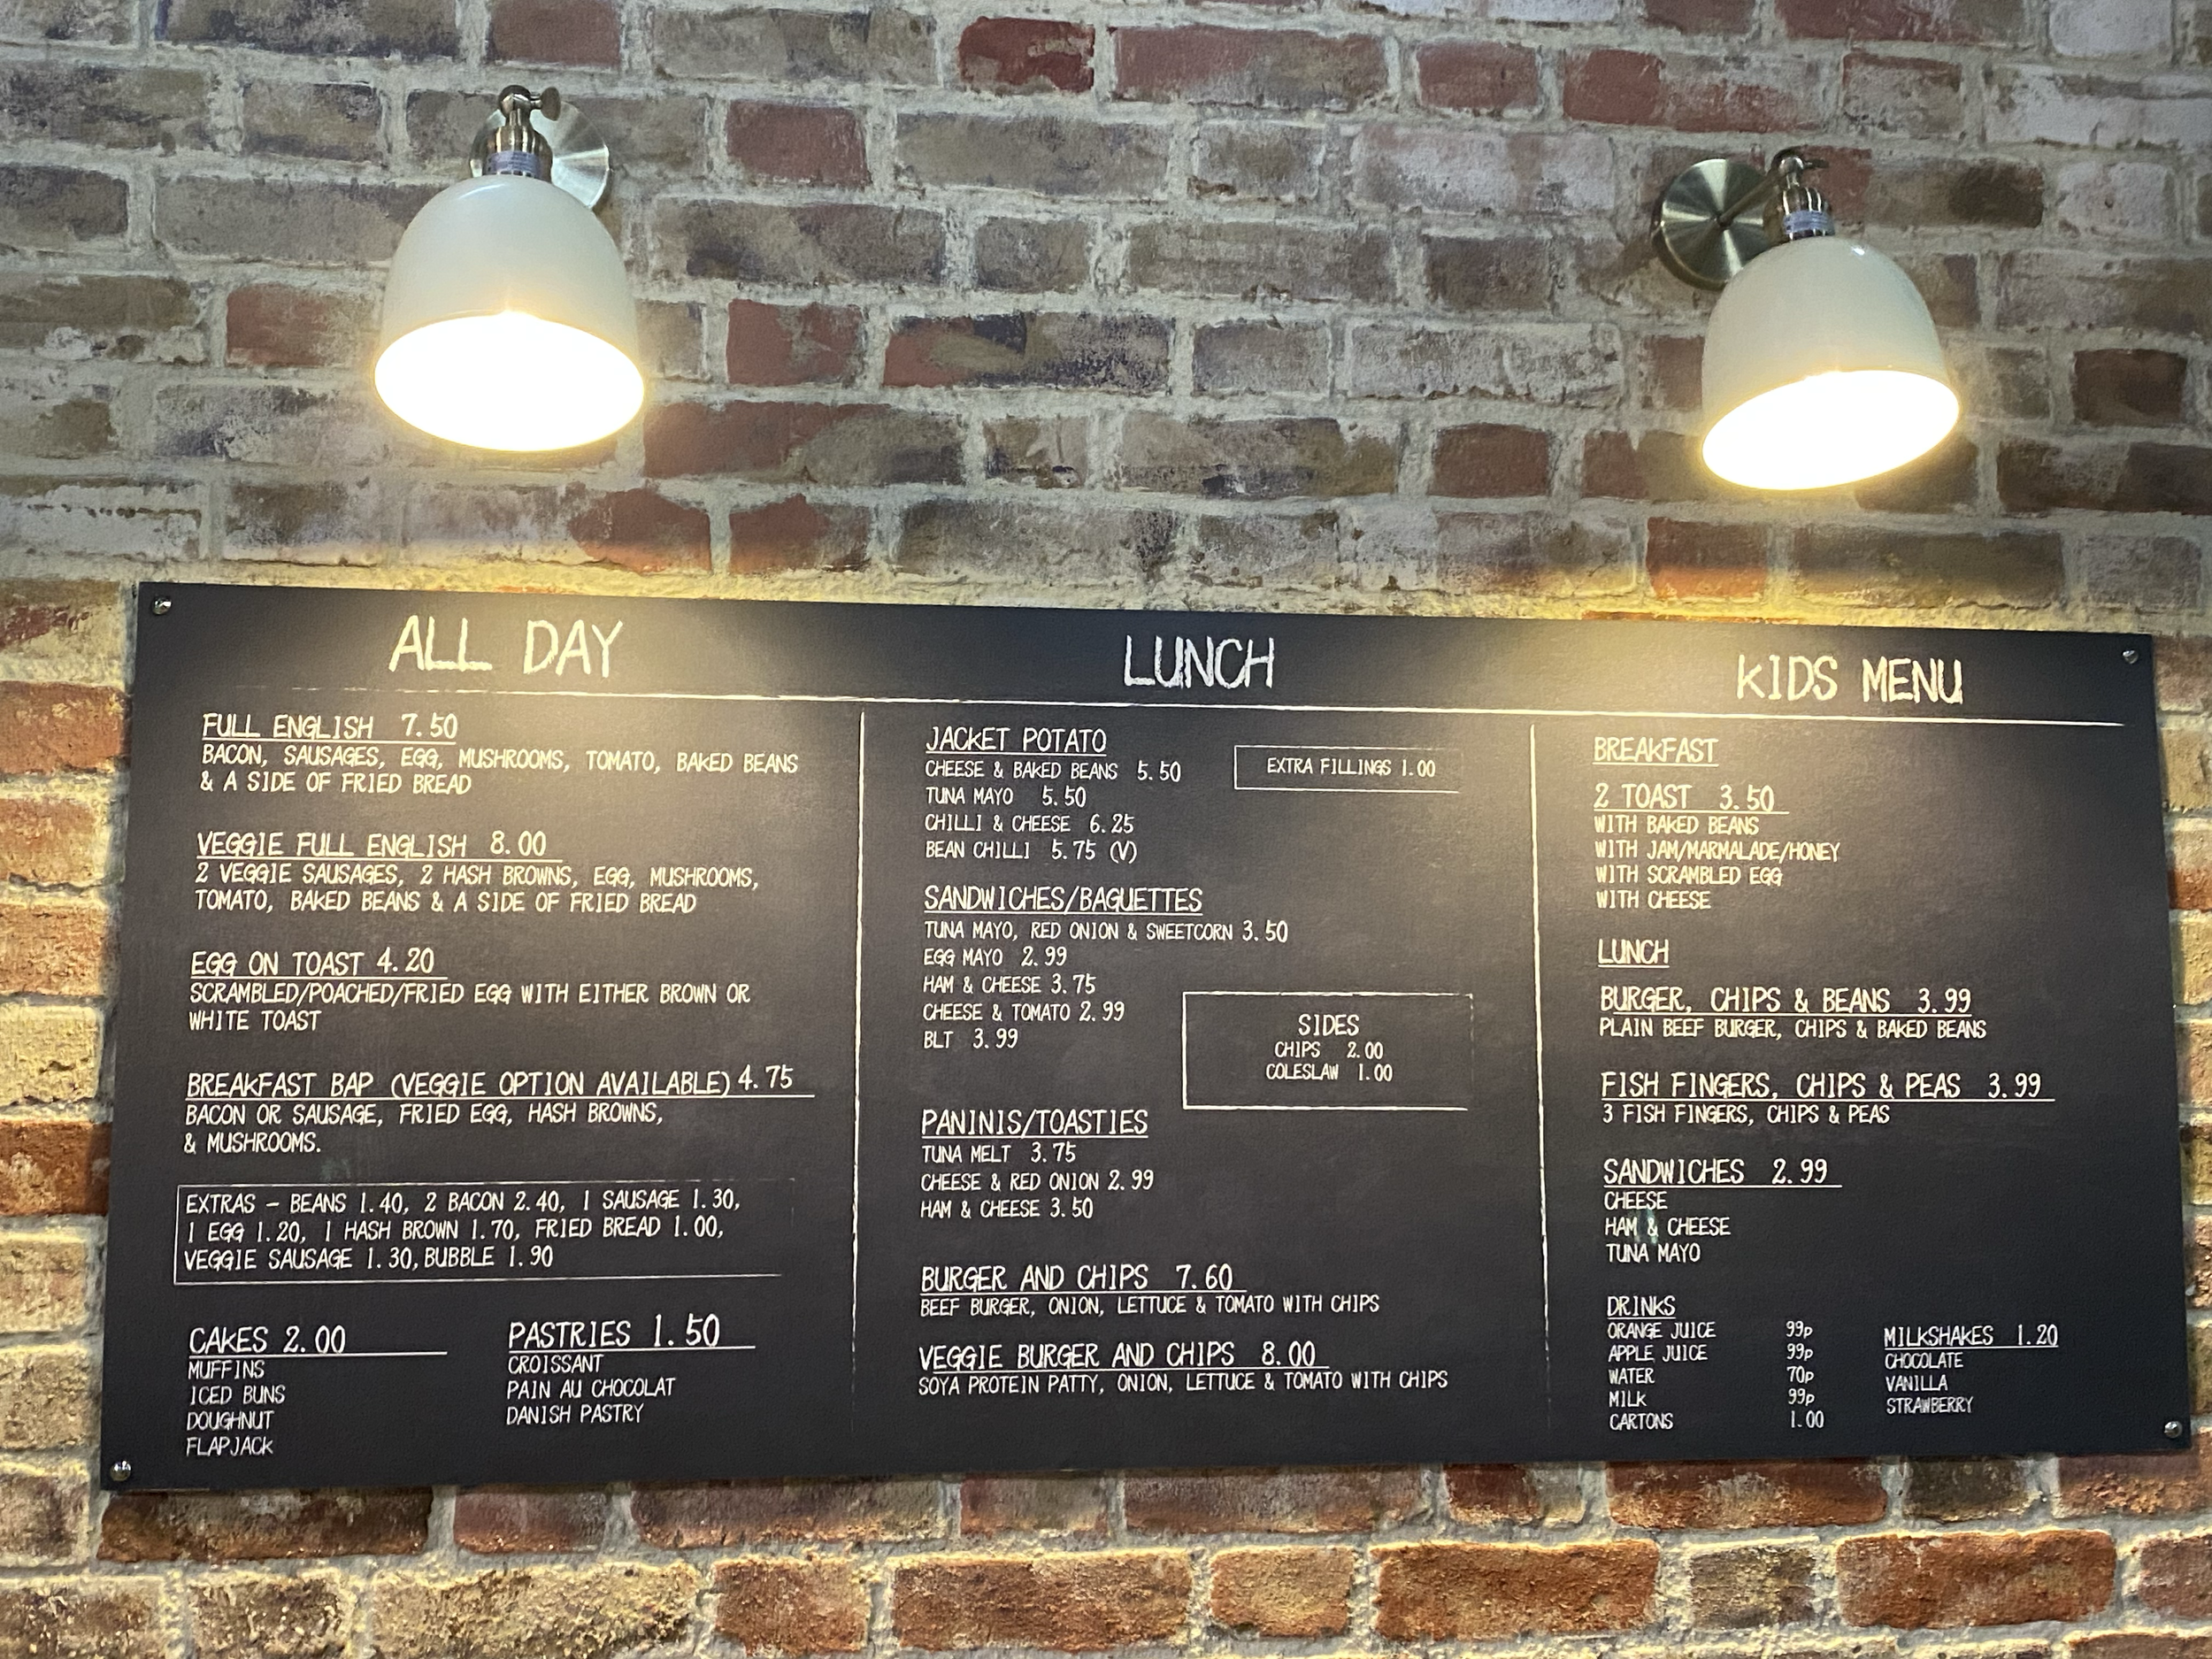 ALL DAY
FULL ENGLISH 7.50
BACON, SAUSAGES, EGG, MUSHROOMS, TOMATO, BAKED BEANS
& A SIDE OF FRIED BREAD
VEGGIE FULL ENGLISH 8.00
2 VEGGIE SAUSAGES, 2 HASH BROWNS, EGG, MUSHROOMS,
TOMATO, BAKED BEANS & A SIDE OF FRIED BREAD
EGG ON TOAST 4.20
SCRAMBLED/POACHED/FRIED EGG WITH EITHER BROWN OR
WHITE TOAST
BREAKFAST BAP (VEGGIE OPTION AVAILABLE) 4.75
BACON OR SAUSAGE, FRIED EGG, HASH BROWNS,
& MUSHROOMS.
EXTRAS - BEANS 1.40, 2 BACON 2.40, 1 SAUSAGE 1.30,
1 EGG 1.20, 1 HASH BROWN 1.70, FRIED BREAD 1.00,
VEGGIE SAUSAGE 1.30, BUBBLE 1.90
CAKES 2.00
MUFFINS
ICED BUNS
DOUGHNUT
FLAPJACK
PASTRIES 1.50
CROISSANT
PAIN AU CHOCOLAT
DANISH PASTRY
LUNCH
JACKET POTATO
CHEESE & BAKED BEANS 5.50
TUNA MAYO 5.50
CHILLI & CHEESE 6.25
BEAN CHILLI 5.75 (V)
EXTRA FILLINGS 1.00
SANDWICHES/BAGUETTES
TUNA MAYO, RED ONION & SWEETCORN 3.50
EGG MAYO 2.99
HAM & CHEESE 3.75
CHEESE & TOMATO 2.99
BLT 3.99
SIDES
CHIPS 2.00
COLESLAW 1.00
PANINIS/TOASTIES
TUNA MELT 3.75
CHEESE & RED ONION 2.99
HAM & CHEESE 3.50
BURGER AND CHIPS 7.60
BEEF BURGER, ONION, LETTUCE & TOMATO WITH CHIPS
VEGGIE BURGER AND CHIPS 8.00
SOYA PROTEIN PATTY, ONION, LETTUCE & TOMATO WITH CHIPS
KIDS MENU
BREAKFAST
2 TOAST 3.50
WITH BAKED BEANS
WITH JAM/MARMALADE/HONEY
WITH SCRAMBLED EGG
WITH CHEESE
LUNCH
BURGER, CHIPS & BEANS 3.99
PLAIN BEEF BURGER, CHIPS & BAKED BEANS
FISH FINGERS, CHIPS & PEAS 3.99
3 FISH FINGERS, CHIPS & PEAS
SANDWICHES 2.99
CHEESE
HAM & CHEESE
TUNA MAYO
DRINKS
ORANGE JUICE 99p
APPLE JUICE 99p
WATER 70p
MILK 99p
CARTONS 1.00
MILKSHAKES 1.20
CHOCOLATE
VANILLA
STRAWBERRY